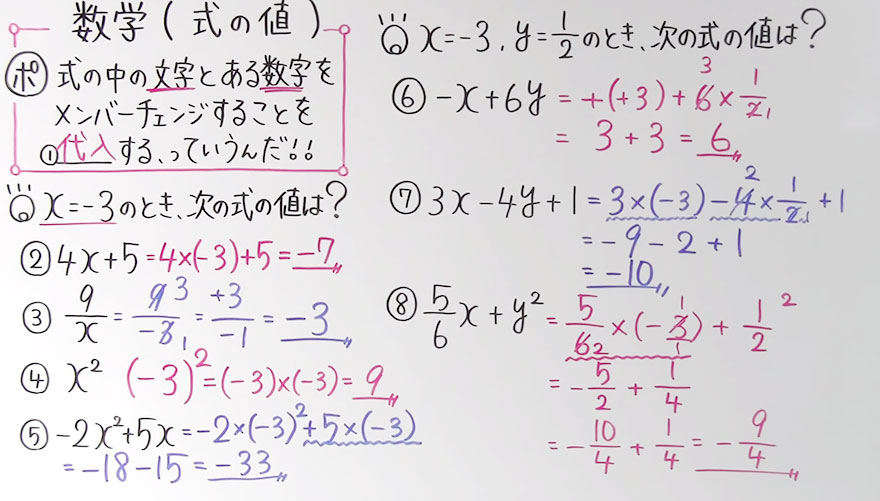 数学(式の値)
ポ 式の中の文字とある数字を
メンバーチェンジすることを
①代入する、っていうんだ!!
Q x=-3のとき、次の式の値は?
② 4x+5=4×(-3)+5=-7
③ 9/x=9 3/-3 1=+3/-1=-3
④ x² (-3)²=(-3)×(-3)=9
⑤ -2x²+5x=-2×(-3)²+5×(-3)
=-18-15=-33
Q x=-3, y=1/2のとき、次の式の値は?
⑥ -x+6y=+(+3)+6 3×1/2 1
= 3+3=6
⑦ 3x-4y+1=3×(-3)-4 2×1/2 1+1
=-9-2+1
=-10
⑧ 5/6x+y²=5/6 2×(-3 1)+1/2²
=-5/2+1/4
=-10/4+1/4=-9/4